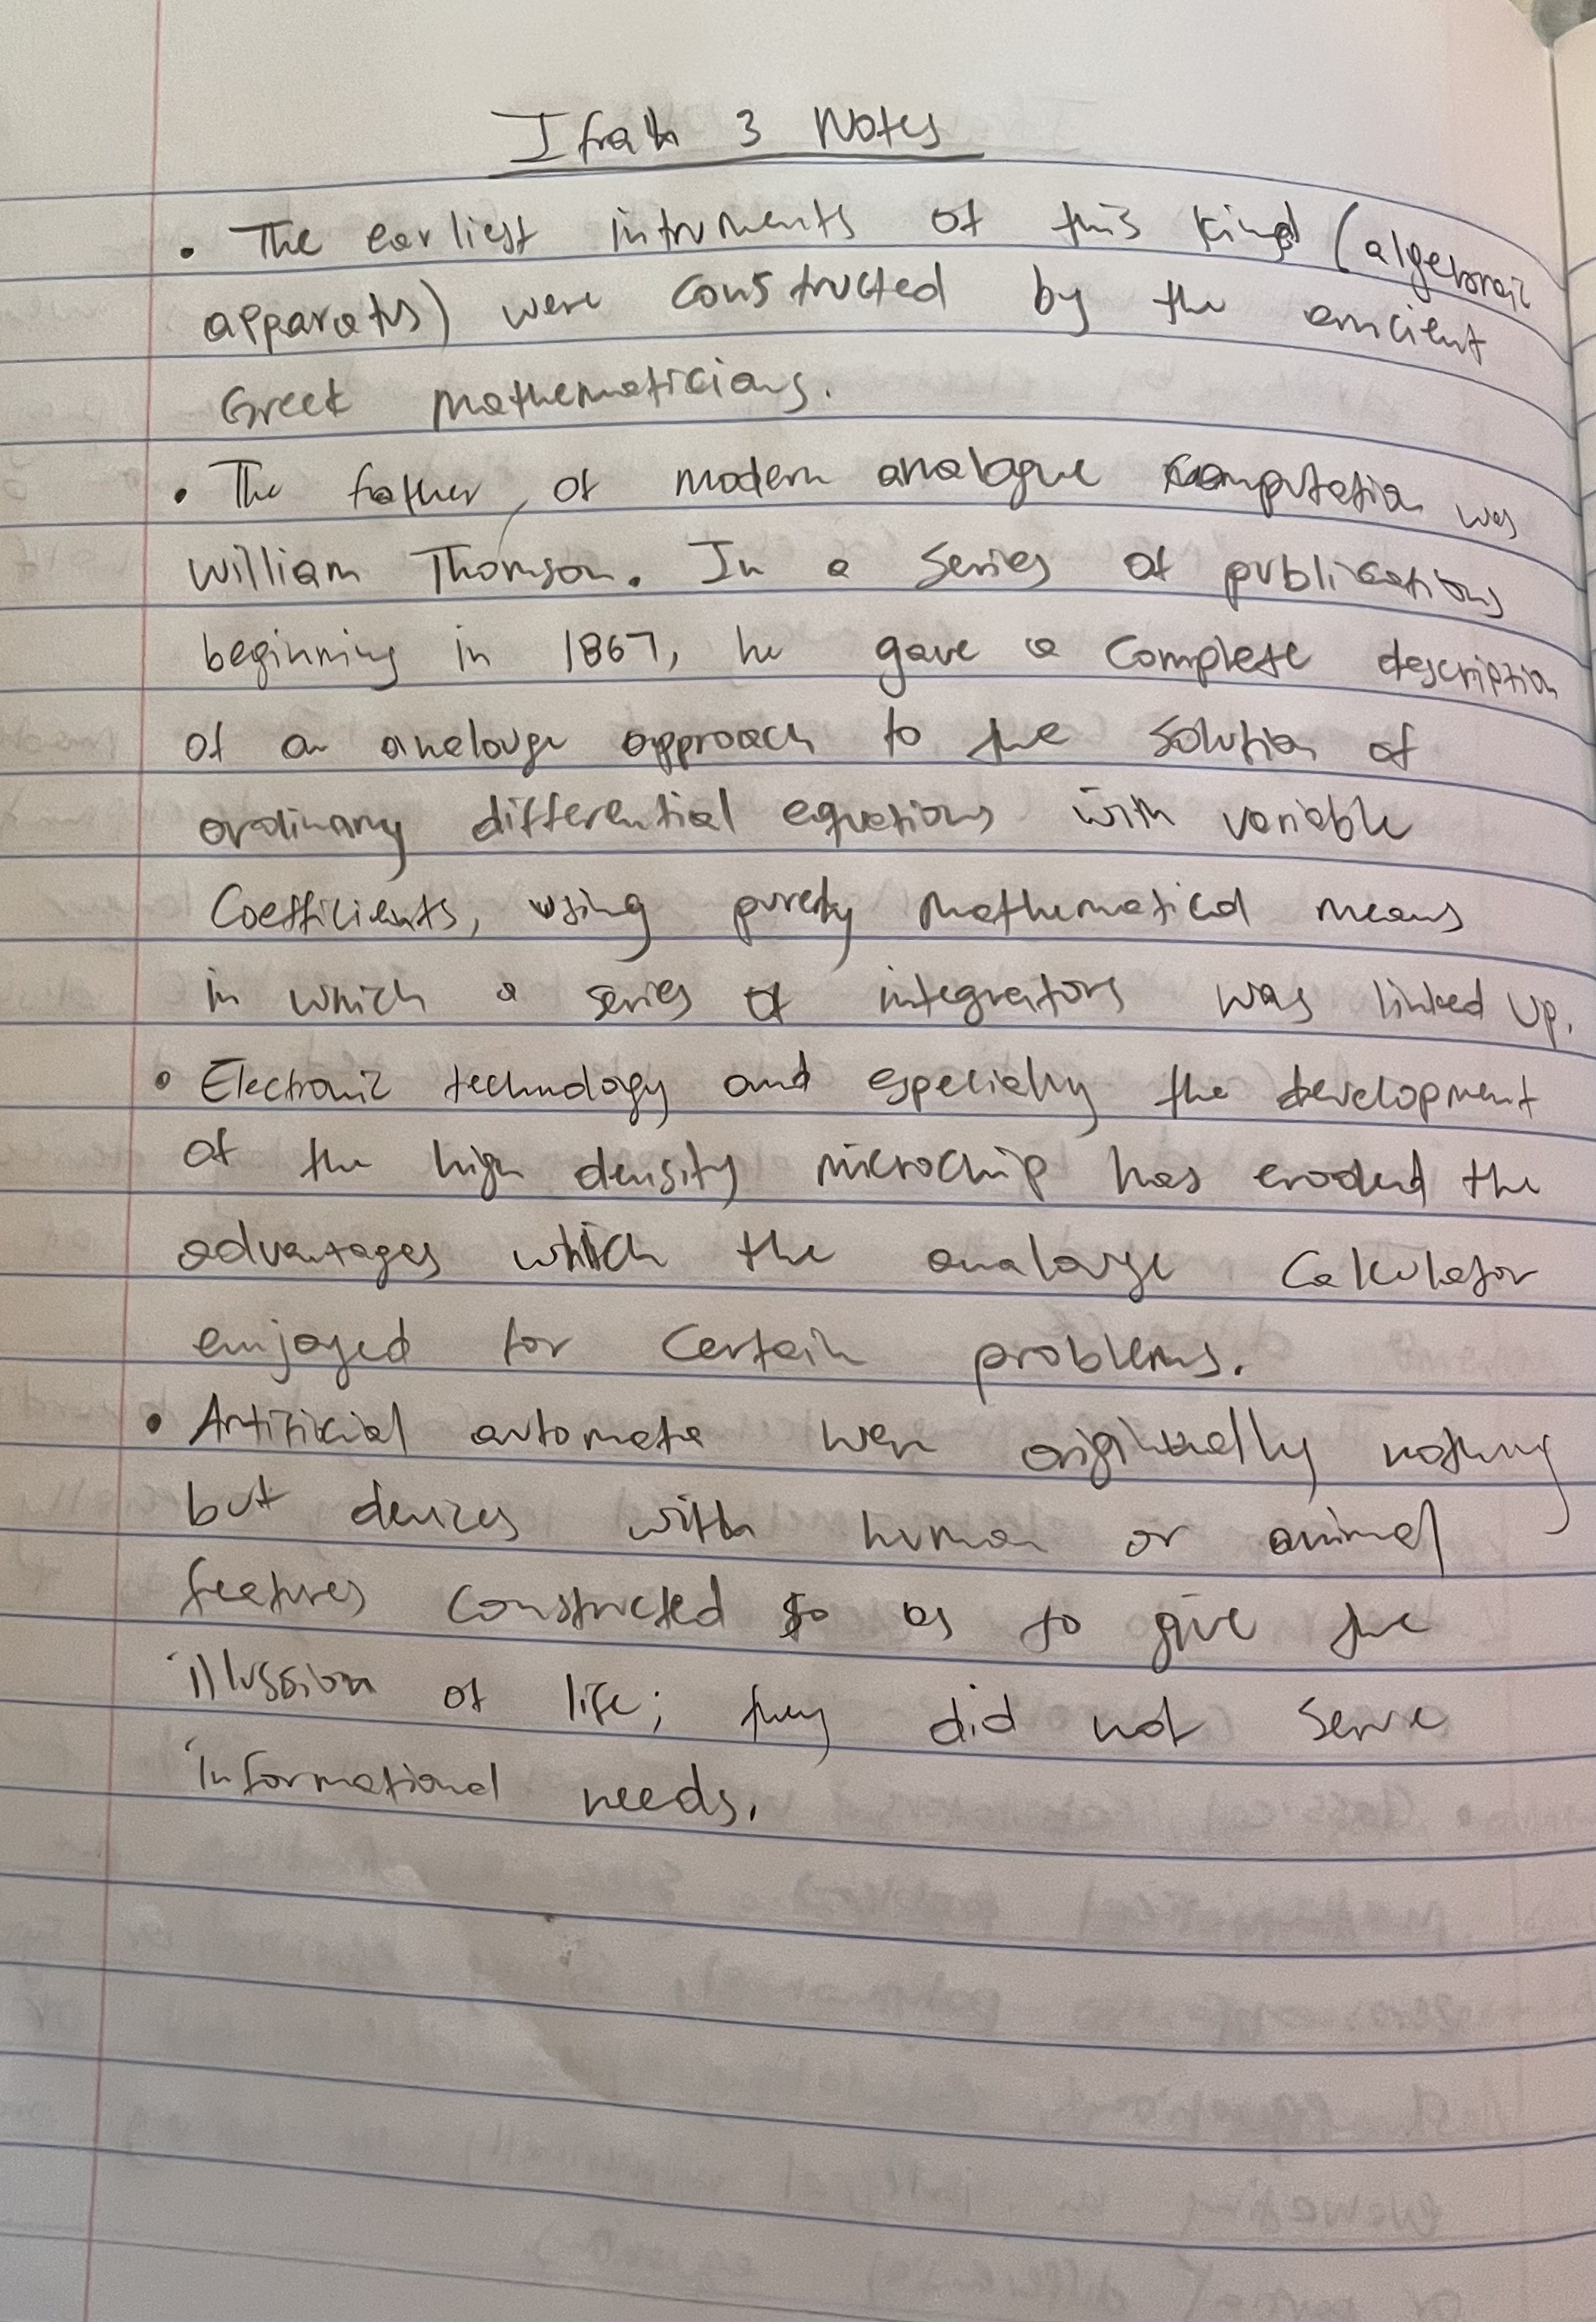 Ifrah 3 Notes
• The earliest intruments of this kind (algebraic
apparatus) were constructed by the ancient
Greek mathematicians.
• The father of modern analogue computation was
William Thomson. In a series of publications
beginning in 1867, he gave a complete description
of an analouge approach to the solution of
ordinary differential equations with variable
Coefficients, using purely mathematical means
in which a series of integrators was linked up.
• Electronic technology and especially the development
of the high density microchip has eroded the
advantages which the analouge calculator
enjoyed for certain problems.
• Artificial automata were originally nothing
but devices with human or animal
features constructed so as to give the
illussion of life; they did not serve
informational needs.